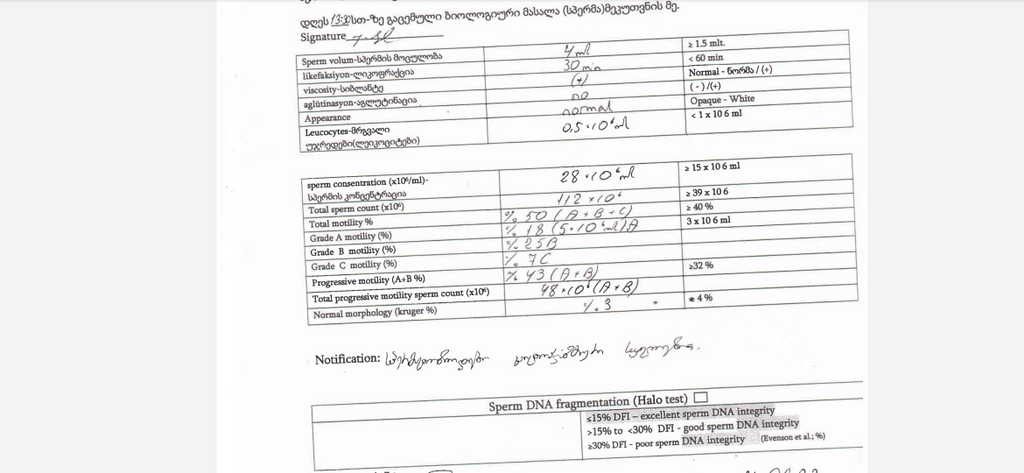 დღეს 13:30სთ-ზე გაცემული ბიოლოგიური მასალა (სპერმა)მეკუთვნის მე.
Signature
Sperm volum-სპერმის მოცულობა 4 ml ≥ 1.5 mlt.
likefaksiyon-ლიკოფრაქცია 30 min < 60 min
viscosity-სიბლანტე (+) Normal - ნორმა / (+)
aglütinasyon-აგლუტინაცია no ( - ) /(+)
Appearance normal Opaque - White
Leucocytes-მრგვალი 0,5 × 10⁶ ml < 1 x 10 6 ml
უჯრედები(ლეიკოციტები)
sperm consentration (x10⁶/ml)- 28 × 10⁶ ml ≥ 15 x 10 6 ml
სპერმის კონცენტრაცია
Total sperm count (x10⁶) 112 × 10⁶ ≥ 39 x 10 6
Total motility % % 50 (A + B + C) ≥ 40 %
Grade A motility (%) % 18 (5 × 10⁶ ml) A 3 x 10 6 ml
Grade B motility (%) % 25B
Grade C motility (%) % 7C
Progressive motility (A+B %) % 43 (A + B) ≥32 %
Total progressive motility sperm count (x10⁶) 48 × 10⁶ (A + B)
Normal morphology (kruger %) % 3 4 %
Notification:
Sperm DNA fragmentation (Halo test)
≤15% DFI – excellent sperm DNA integrity
>15% to <30% DFI - good sperm DNA integrity
≥30% DFI - poor sperm DNA integrity (Evenson et al.; %)